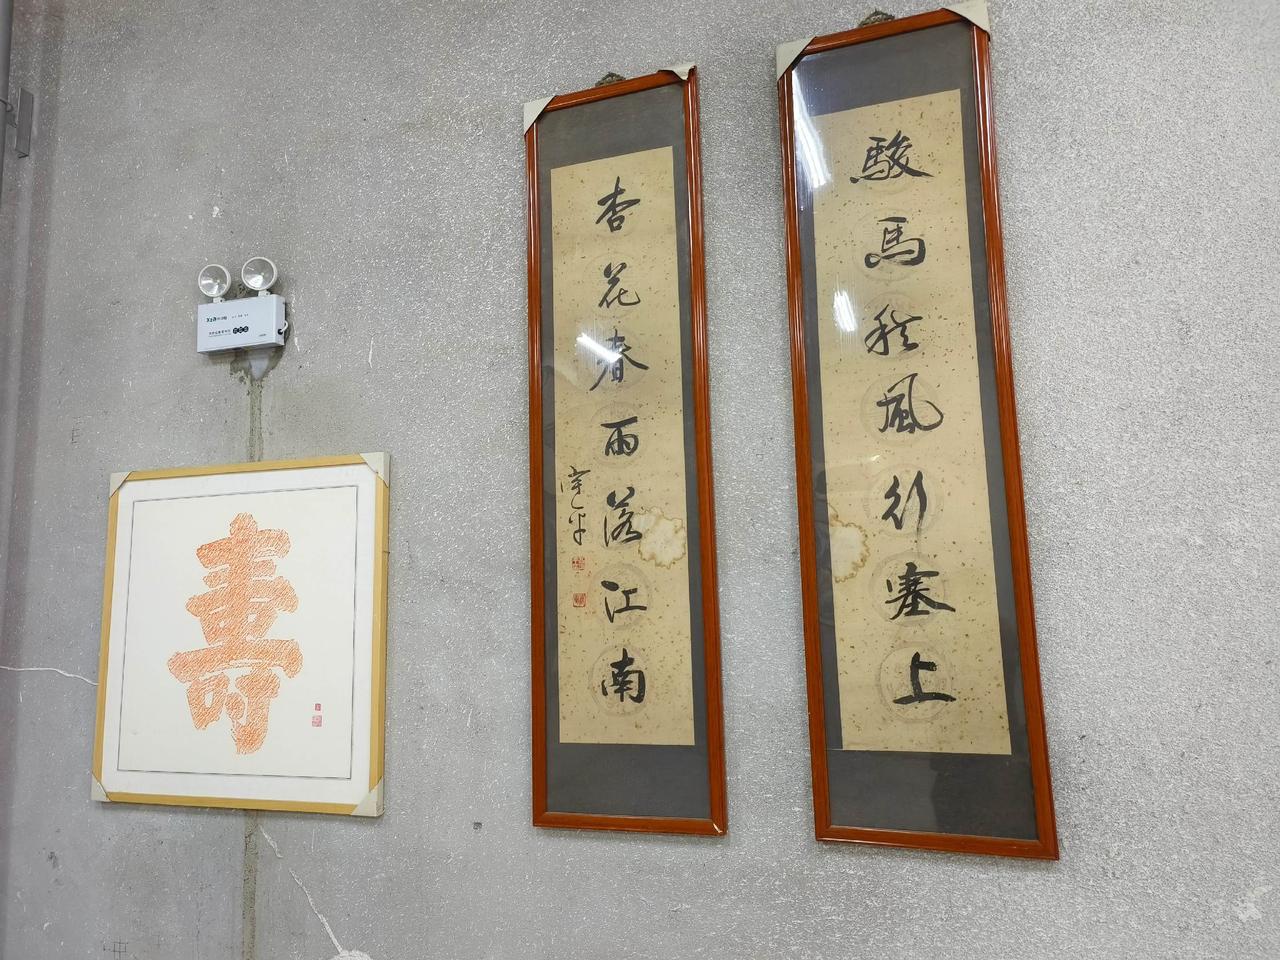 駿馬秋風行塞上
杏花春雨落江南
壽